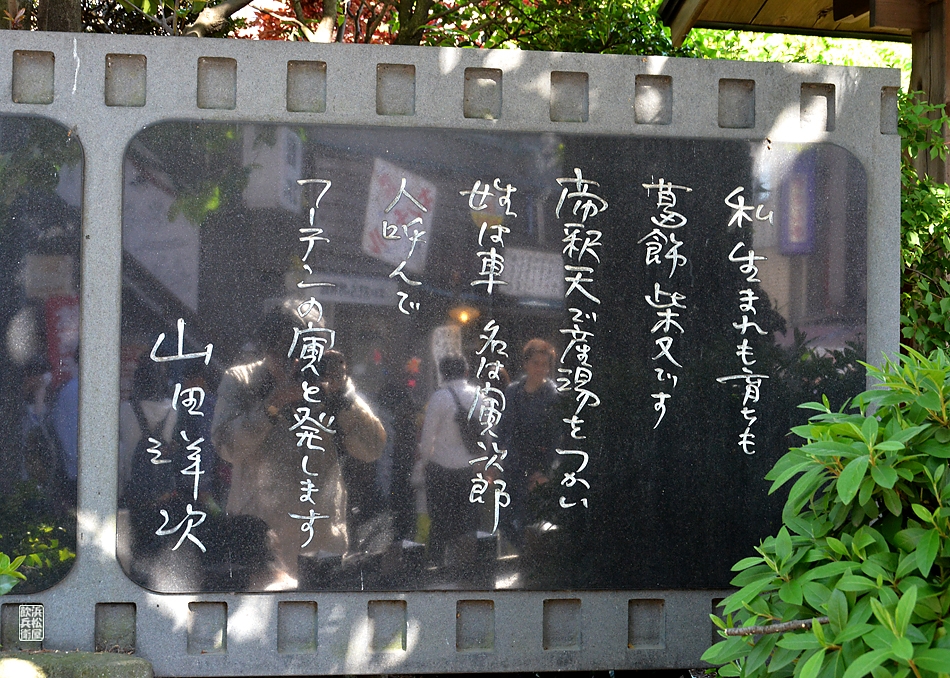 私生まれも育ちも
葛飾柴又です
帝釈天で産湯をつかい
姓は車 名は寅次郎
人呼んで
フーテンの寅と発します
山田洋次
浜松屋
飲兵衛